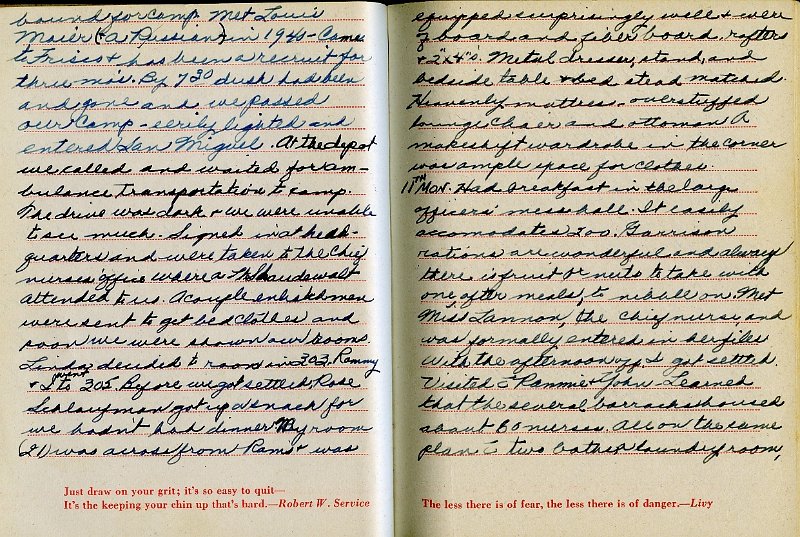 bound for camp. Met Louis
Maier (a Russian) in 1940 - Came
to Frisco & has been a recruit for
three mos. By 7 30 dusk had been
and gone and we passed
our camp - eerily lighted and
entered San Miguel. At the depot
we called and waited for am-
bulance transportation to camp.
The drive was dark & we were unable
to see much. Signed in at head-
quarters and were taken to the chief
nurses office where a
attended to us. A couple enlisted men
were sent to get bed clothes and
soon we were shown our rooms.
Linda decided to room in 303, Rammy
& I went to 305. Before we got settled, Rose
Schlaufman got up a snack for
we hadn't had dinner. My room
(21) was across from Rams & was
Just draw on your grit; it's so easy to quit—
It's the keeping your chin up that's hard.—Robert W. Service
equipped surprisingly well & were
of board and fiber board, rafters
& 2"x4"s. Metal dresser, stand, and
bedside table & bed stead matched.
Heavenly mattress - overstuffed
lounge chair and ottoman A
makeshift wardrobe in the corner
was ample space for clothes.
11TH MON. Had breakfast in the large
officers' mess hall. It easily
accomodates 200. Garrison
rations are wonderful and always
there is fruit or nuts to take with
one after meals, to nibull on. Met
Miss Lannon, the chief nurse, and
was formally entered in her files
With the afternoon off I got settled.
Visited c̄ Rammie & John Learned
that the several barracks housed
about 60 nurses. All on the same
plan c̄ two baths, laundry room,
The less there is of fear, the less there is of danger.—Livy